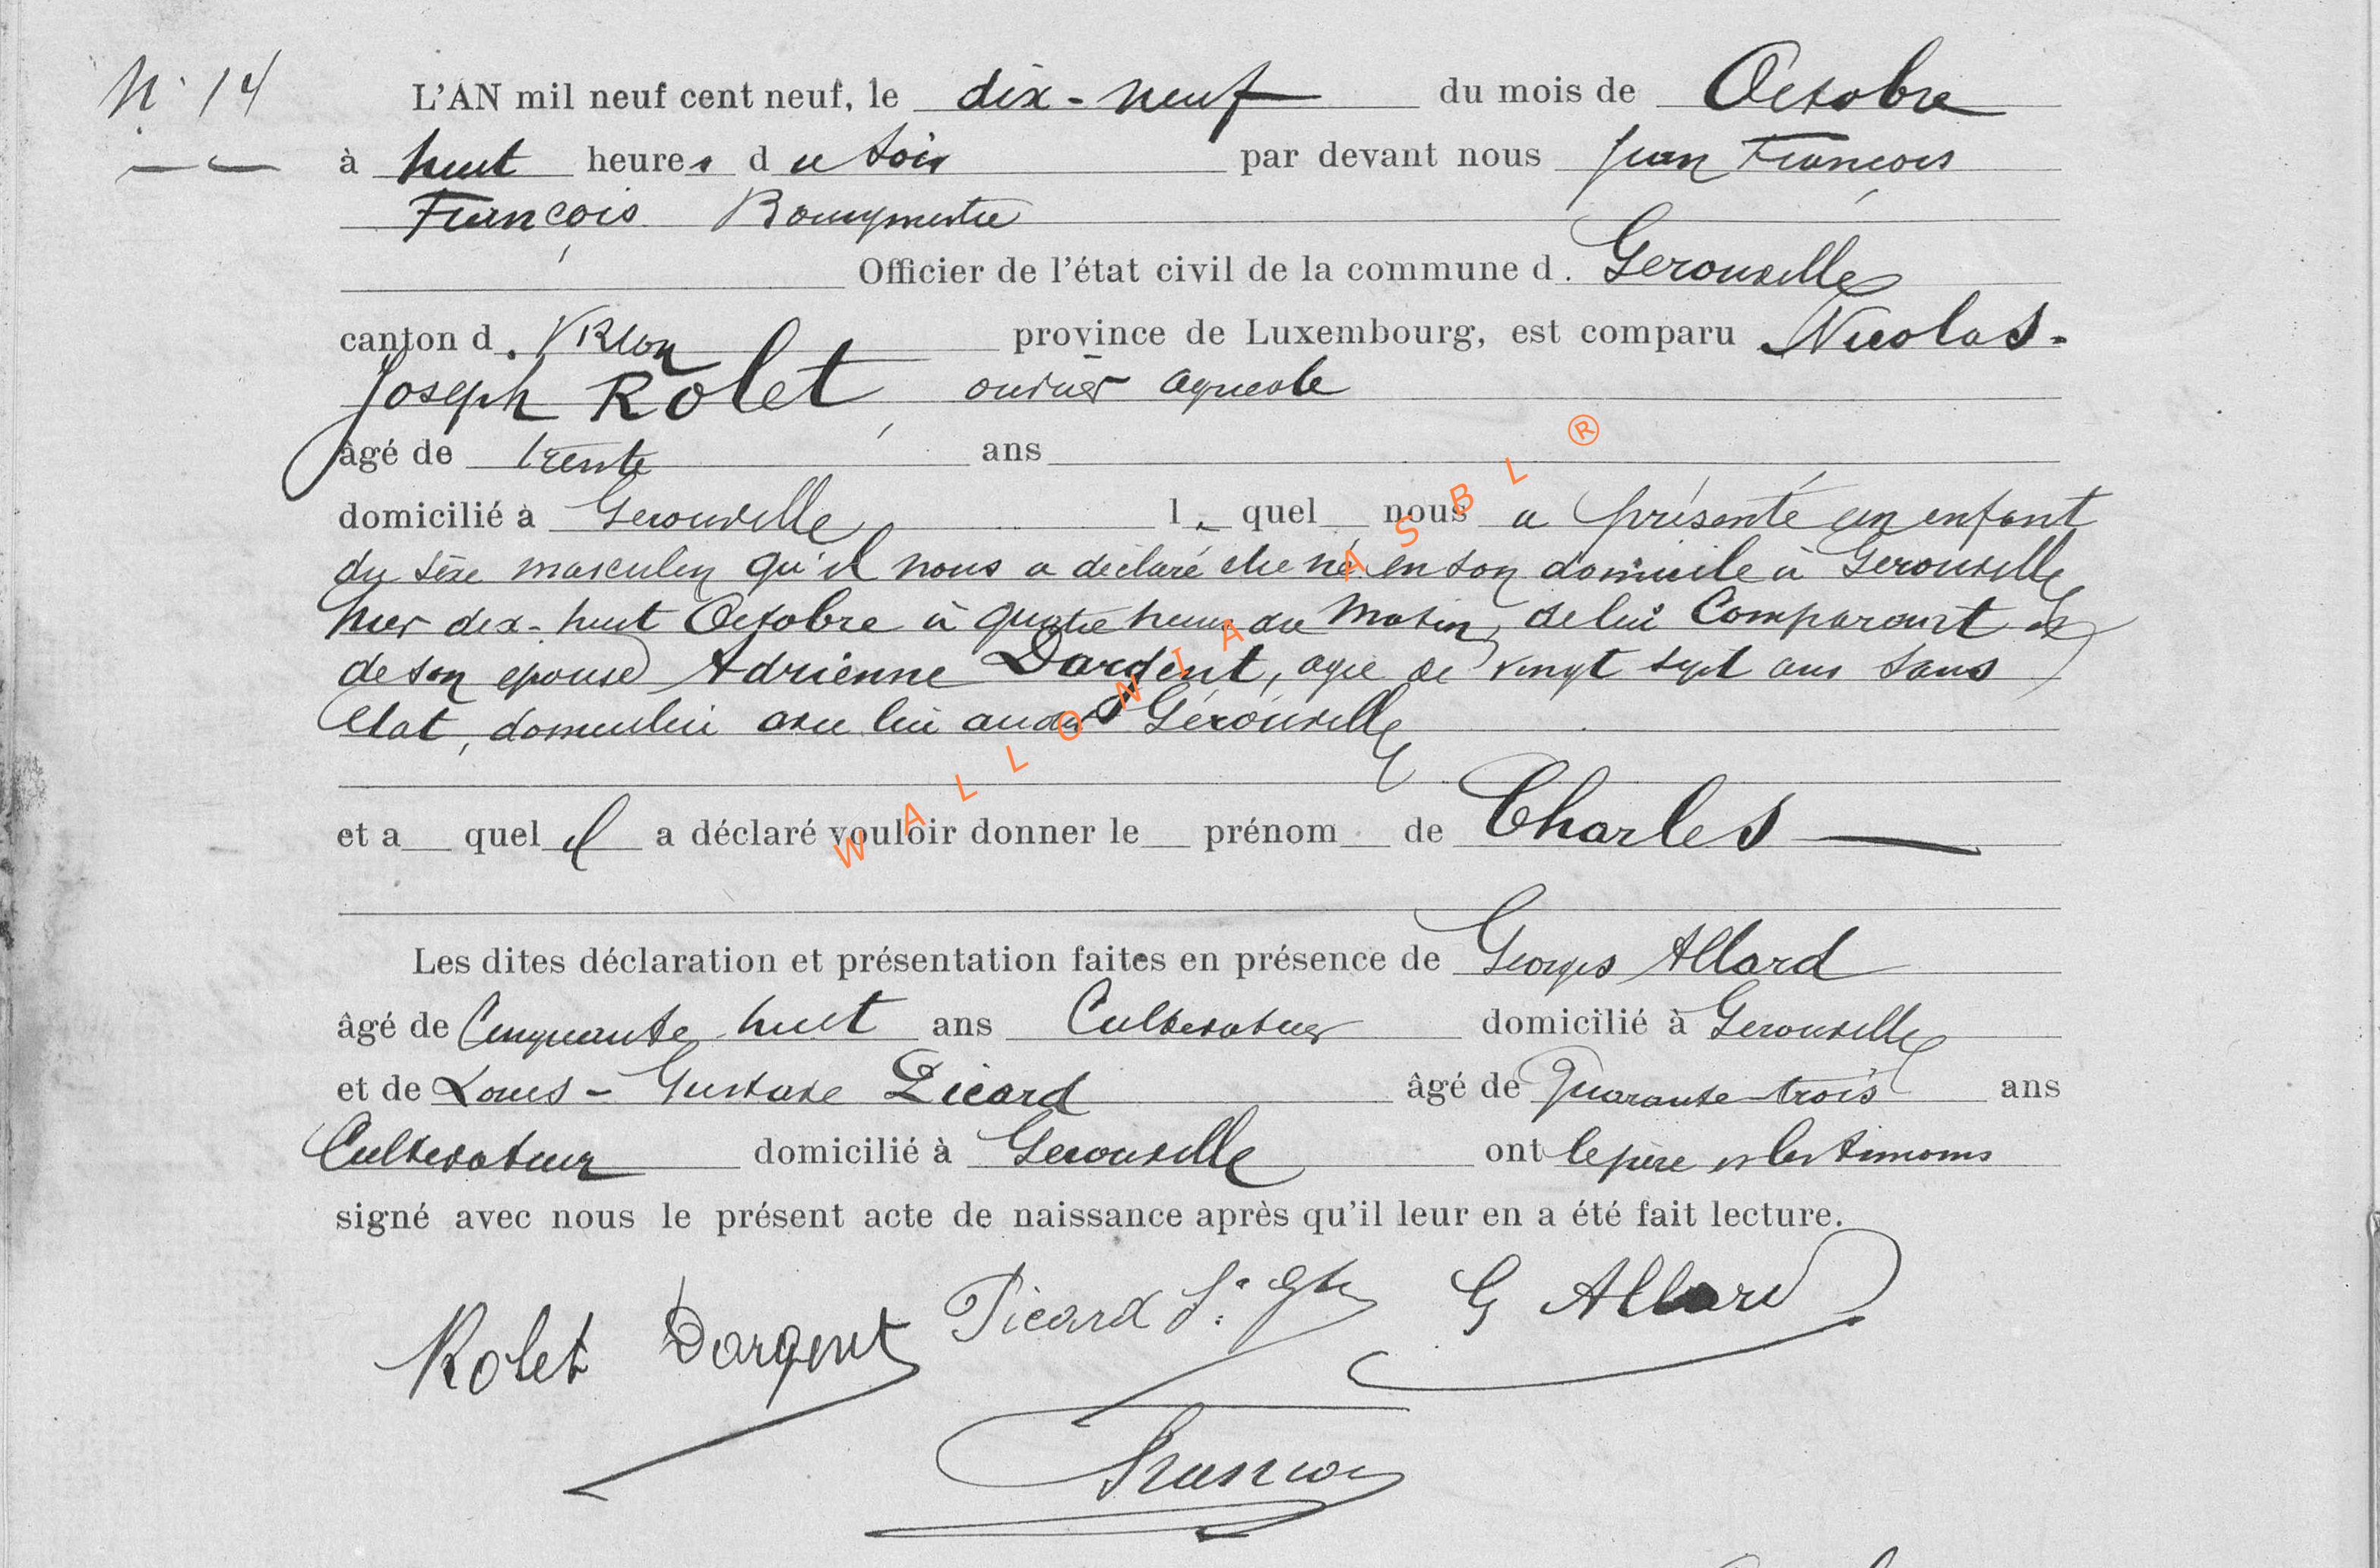 N° 14
L'AN mil neuf cent neuf, le dix-neuf du mois de Octobre
à huit heures du soir par devant nous Jean François
François Bourgmestre
Officier de l'état civil de la commune d. Gerouville
canton d. Virton province de Luxembourg, est comparu Nicolas-
Joseph Rolet, ouvrier agricole
âgé de trente ans
domicilié à Gerouville lequel nous a présenté un enfant
du sexe masculin qu'il nous a déclaré être né en son domicile à Gerouville
hier dix-huit Octobre à quatre heures du matin, de lui Comparant et
de son épouse Adrienne Dargent, agée de vingt sept ans sans
état, domiciliée avec lui audit Gérouville
et a quel il a déclaré vouloir donner le prénom de Charles
Les dites déclaration et présentation faites en présence de Georges Allard
âgé de Cinquante huit ans Cultivateur domicilié à Gerouville
et de Louis-Gustave Picard âgé de Quarante-trois ans
Cultivateur domicilié à Gerouville ont le père et les témoins
signé avec nous le présent acte de naissance après qu'il leur en a été fait lecture.
Rolet Dargent Picard G Allard
François
WALLONIA ASBL ®